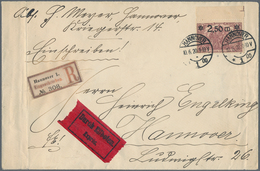 Abs. S. Meyer Hannover
Kriegerstr. 14
Einschreiben!
2,50 M
HANNOVER
Hannover 1.
№ 206.
Durch Eilboten
Herrn Heinrich Engelking
Hannover
Ludwigstr. 26.